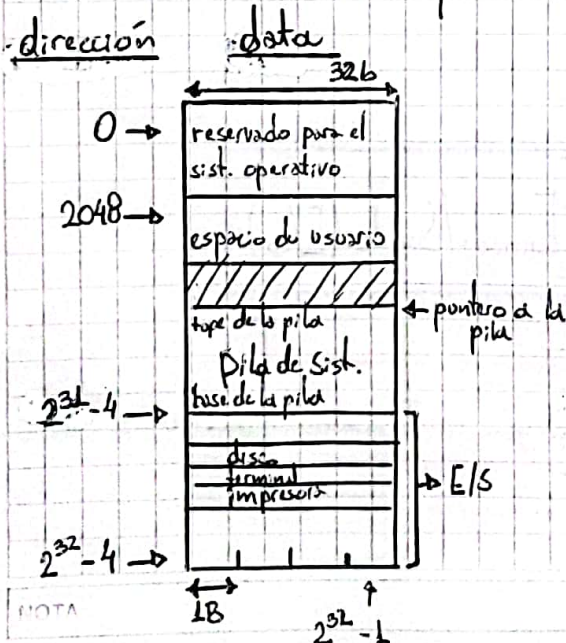 dirección data
32b
0 → reservado para el
sist. operativo
2048 →
espacio de usuario
← puntero a la
pila
tope de la pila
Pila de Sist.
base de la pila
2^31 - 4 →
disco
terminal
impresora
→ E/S
2^32 - 4 →
1B
2^32 - 1
NOTA